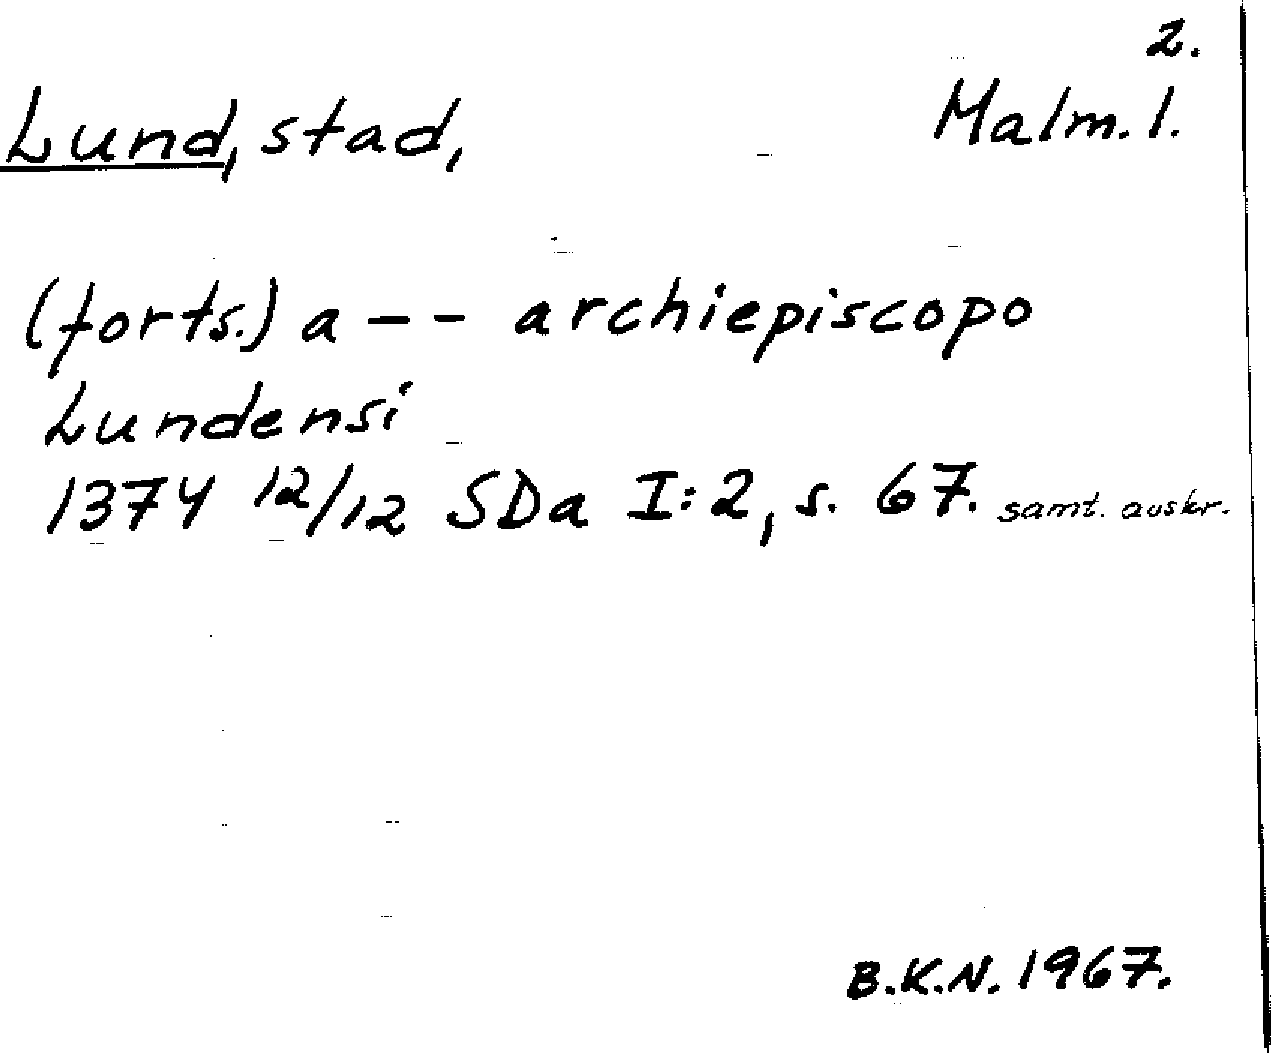 2.
Lund, stad, Malm. l.
(forts.) a -- archiepiscopo
Lundensi
1374 12/12 SDa I:2, s. 67. samt. avskr.
B.K.N. 1967.